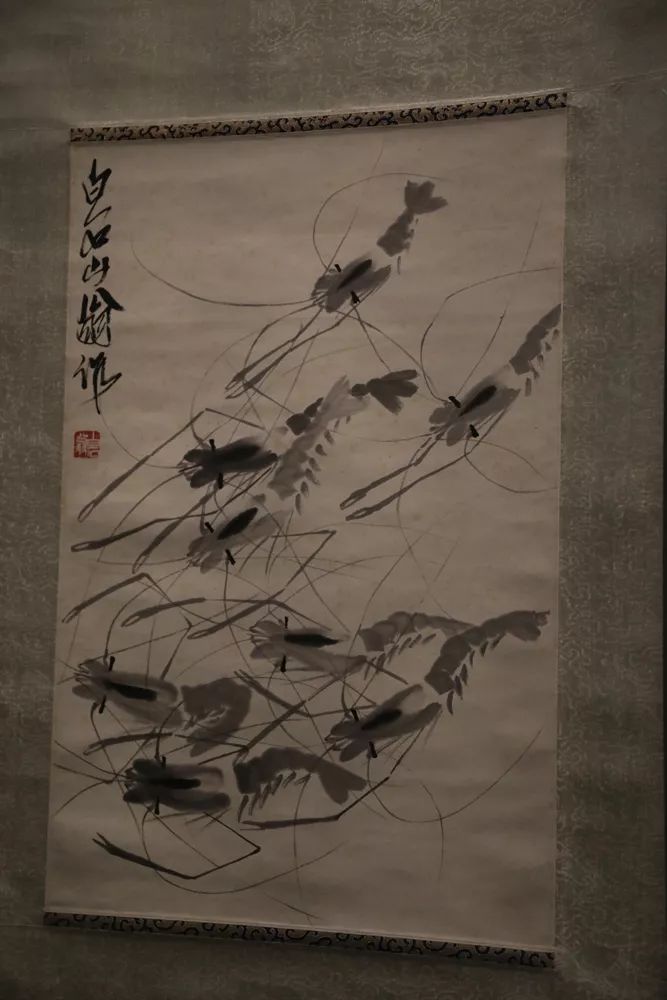 白石山翁作